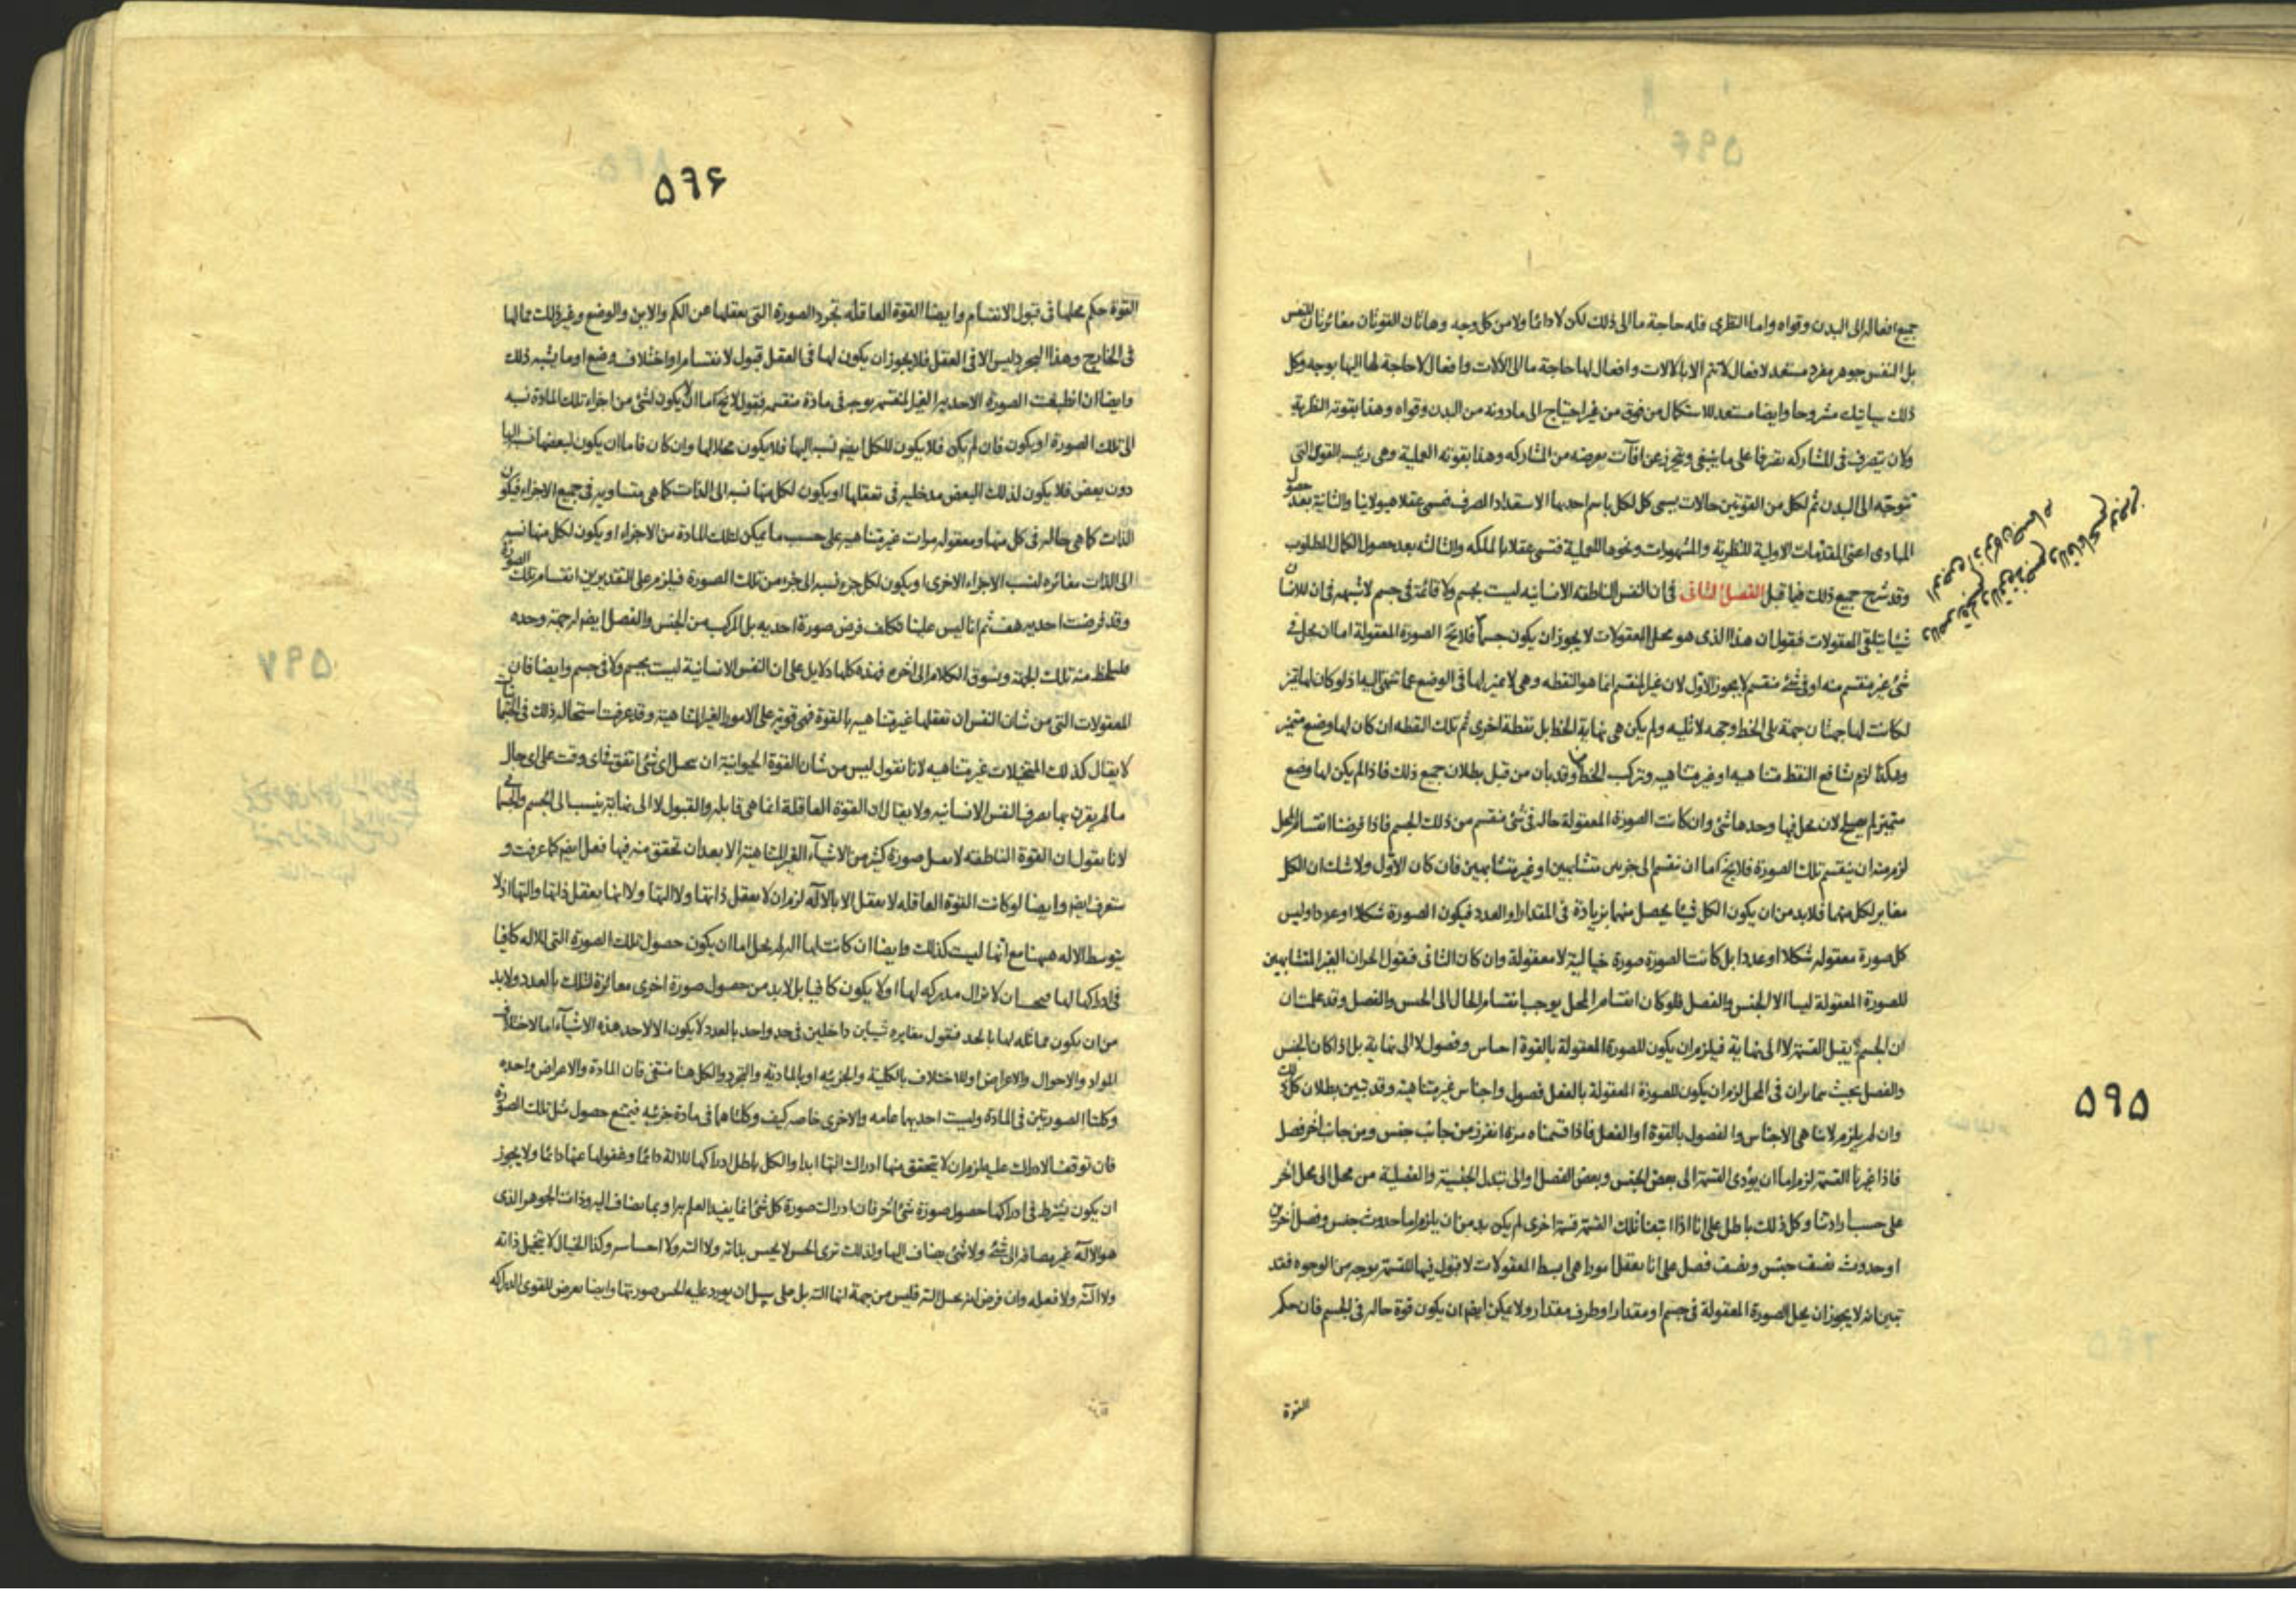 جميع افعاله الى البدن وقواه واما النظرى فله حاجة ما الى ذلك لكن لا دائما ولا من كل وجه وهاتان القوتان مغائرتان للنفس
بل النفس جوهر مفرد مستعد لافعال لا تتم الا بالالات وافعال لها حاجة ما الى الآلات وافعال لا حاجة لها اليها بوجه وكل
ذلك سياتيك مشروحا وايضا مستعد للاستكمال من فوق من غير احتياج الى ما دونه من البدن وقواه وهذا بقوته النظرية
ولان يتصرف فى المشاركه تصرفا على ما ينبغى ويتحرز عن افآت يعرضه من المشاركه وهذا بقوته العملية وهى رئيسه القوى التى
تتوجه الى البدن ثم لكل من القوتين حالات يسمى كل لكل باسم احديها الاستعداد الصرف فسمى عقلا هيولانيا والثانية بعد حصول
المبادى اعنى المقدمات الاولية للنظرية والمشهورات ونحوها للعملية فتسمى عقلا بالملكه والثالثه بعد حصول الكمال المطلوب
وقد شرح جميع ذلك فيما قبل الفصل الثانى فى ان النفس الناطقه الانسانيه ليست بجسم ولا قائمة فى جسم لا شبهه فى ان للانسان
شيئا يتلقى المعقولات فنقول ان هذا الذى هو محل المعقولات لا يجوز ان يكون جسما فلا يخ الصورة المعقولة اما ان يحل فى
شئ غير منقسم منه او فى شئ منقسم لا يجوز الاول لان غير المنقسم انما هو النقطه وهى لا تميز لها فى الوضع عما تنتهى اليه اذ لو كان لها تميز
لكانت لها جهتان جهة يلى الخط وجهه لا تليه ولم يكن هى نهاية الخط بل نقطة اخرى ثم تلك النقطه ان كان لها وضع متميز
وهكذا لزم تشافع النقط متناهيه او غير متناهيه وتركب الخط وقد بان من قبل بطلان جميع ذلك فاذا لم يكن لها وضع
متميز لم يصح لان يحل فيها وحدها شئ وان كانت الصورة المعقولة حاله فى شئ منقسم من ذلك الجسم فاذا فرضنا انقسام المحل
لزم منه ان ينقسم تلك الصورة فلا يخ اما ان تنقسم الى جزئين متشابهين او غير متشابهين فان كان الاول ولا شك ان الكل
مغاير لكل منهما فلابد من ان يكون الكل شيئا يحصل منهما بزيادة فى المقدار او العدد فيكون الصورة شكلا او عددا وليس
كل صورة معقوله شكلا او عددا بل كانت الصورة صورة خيالية لا معقولة وان كان الثانى فنقول الجزءان الغير المتشابهين
للصورة المعقولة ليسا الا الجنس والفصل فلو كان انقسام المحل يوجب انقسام الحال الى الجنس والفصل وقد علمت ان
ان الجسم يقبل القسمة لا الى نهاية فيلزم ان يكون للصورة المعقولة بالقوة اجناس وفصول لا الى نهاية بل اذا كان الجنس
والفصل بحيث يتمايزان فى المحل لزم ان يكون للصورة المعقولة بالفعل فصول واجناس غير متناهية وقد تبين بطلان كل ذلك
وان لم يلزم لا تناهى الاجناس والفصول بالقوة او الفعل فاذا قسمناه مرة انفرز من جانب جنس ومن جانب آخر فصل
فاذا غيرنا القسمة لزم اما ان يؤدى القسمة الى بعض الجنس وبعض الفصل او الى تبدل الجنسية والفصلية من محل الى محل آخر
على حسب ارادتنا وكل ذلك باطل على انا اذا اتبعنا تلك القسمة قسمة اخرى لم يكن بد من ان يلزم اما حدوث جنس وفصل آخرين
او حدوث نصف جنس ونصف فصل على انا نعقل امورا هى ابسط المعقولات لا قبول فيها للقسمة بوجه من الوجوه فقد
تبين انه لا يجوز ان يحل الصورة المعقولة فى جسم او مقدار او طرف مقدار ولا يمكن ايضا ان يكون قوة حاله فى الجسم فان حكم
القوة
۵۹۵
۵۹۶
القوة حكم محلها فى قبول الانقسام وايضا القوة العاقله تجرد الصورة التى يعقلها عن الكم والاين والوضع وغير ذلك مما لها
فى الخارج وهذا التجرد ليس الا فى العقل فلا يجوز ان يكون لها فى العقل قبول لانقسام او اختلاف وضع او ما يشبه ذلك
وايضا ان انطبعت الصورة الاحديه الغير المنقسمه يوجه فى مادة منقسمه فنقول لا يخ اما ان لا يكون لشئ من اجزاء تلك المادة نسبه
الى تلك الصورة او يكون فان لم يكن فلا يكون للكل ايضا نسبه اليها فلا يكون محلا لها وان كان فاما ان يكون لبعضها نسبه اليها
دون بعض فلا يكون لذلك البعض مدخليه فى تعقلها او يكون لكل منها نسبه الى الذات كما هى متساويه فى جميع الاجزاء فيكون
الذات كما هى حاله فى كل منها ومعقوله مرات غير متناهيه على حسب ما يمكن لتلك المادة من الاجزاء او يكون لكل منها نسبه
الى الذات مغائره لنسب الاجزاء الاخرى او يكون لكل جزء نسبه الى جزء من تلك الصورة فيلزم على التقديرين انقسام تلك الصورة
وقد فرضت احديه هف ثم انا ليس علينا تكلف فرض صورة احديه بل المركب من الجنس والفصل ايضا له جهة وحده
فليلحظ منه تلك الجهة ونسوق الكلام الى آخره فهذه كلها دلايل على ان النفس الانسانية ليست بجسم ولا فى جسم وايضا فان
المعقولات التى من شان النفس ان تعقلها غير متناهيه بالقوة فهى قوية على الامور الغير المتناهية وقد عرفت استحاله ذلك فى الجسمانيات
لا يقال كذلك المتخيلات غير متناهيه لانا نقول ليس من شان القوة الحيوانية ان يتخيل اى شئ اتفق فى اى وقت على اى حال
ما لم يقترن بها تصرف النفس الانسانيه ولا يقال ان القوة العاقلة انما هى قابله والقبول لا الى نهاية ينسب الى الجسم
لانا نقول ان القوة الناطقه لا تعقل صورة كثير من الاشياء الغير المتناهية الا بعد ان تحقق منه فيها فعل ايضا كما عرفت و
ستعرف ايضا وايضا لو كانت القوة العاقله لا يعقل الا بالآله لزم ان لا يعقل ذاتها ولا آلتها ولا انها يعقل ذاتها وآلتها اذ لا
يتوسط الاله ههنا مع انها ليست كذلك وايضا ان كانت لها اله لم يخل اما ان يكون حصول تلك الصورة التى للاله كافيا
فى ادراكها لها فيجب ان لا تزال مدركه لها او لا يكون كافيا بل لابد من حصول صورة اخرى مغائرة لتلك بالعدد ولابد
من ان يكون مماثله لها بالحد فنقول مغايره شيئين داخلين فى حد واحد بالعدد لا يكون الا لاحد هذه الاشياء اما لاختلاف
المواد والاحوال والاعراض او للاختلاف بالكلية والجزئيه او بالمادية والتجرد والكل هنا منتف فان المادة والاعراض واحده
وكلتا الصورتين فى المادة وليست احديهما عامه والاخرى خاصه كيف وكلتاهما فى مادة جزئيه فيمتنع حصول مثل تلك الصورة
فان توقف الادراك عليه لزم ان لا يتحقق منها ادراك التها ابدا والكل باطل ادراكها للآلة دائما وغفولها عنها دائما ولا يجوز
ان يكون يشترط فى ادراكها حصول صورة شئ آخر فان ادراك صورة كل شئ انما يفيد العلم به او بما يضاف اليه وذات الجوهر الذى
هو الاله غير مضافه الى شئ ولا شئ يضاف اليها ولذلك ترى الحس لا يحس بذاته ولا آلته ولا احساسه وكذا الخيال لا يتخيل ذاته
ولا آلته ولا فعله وان فرض انه يخيل آلته فليس من جهة انها آلته بل على سبيل ان يورد عليه الحس صورتها وايضا يعرض للقوى الدراكه